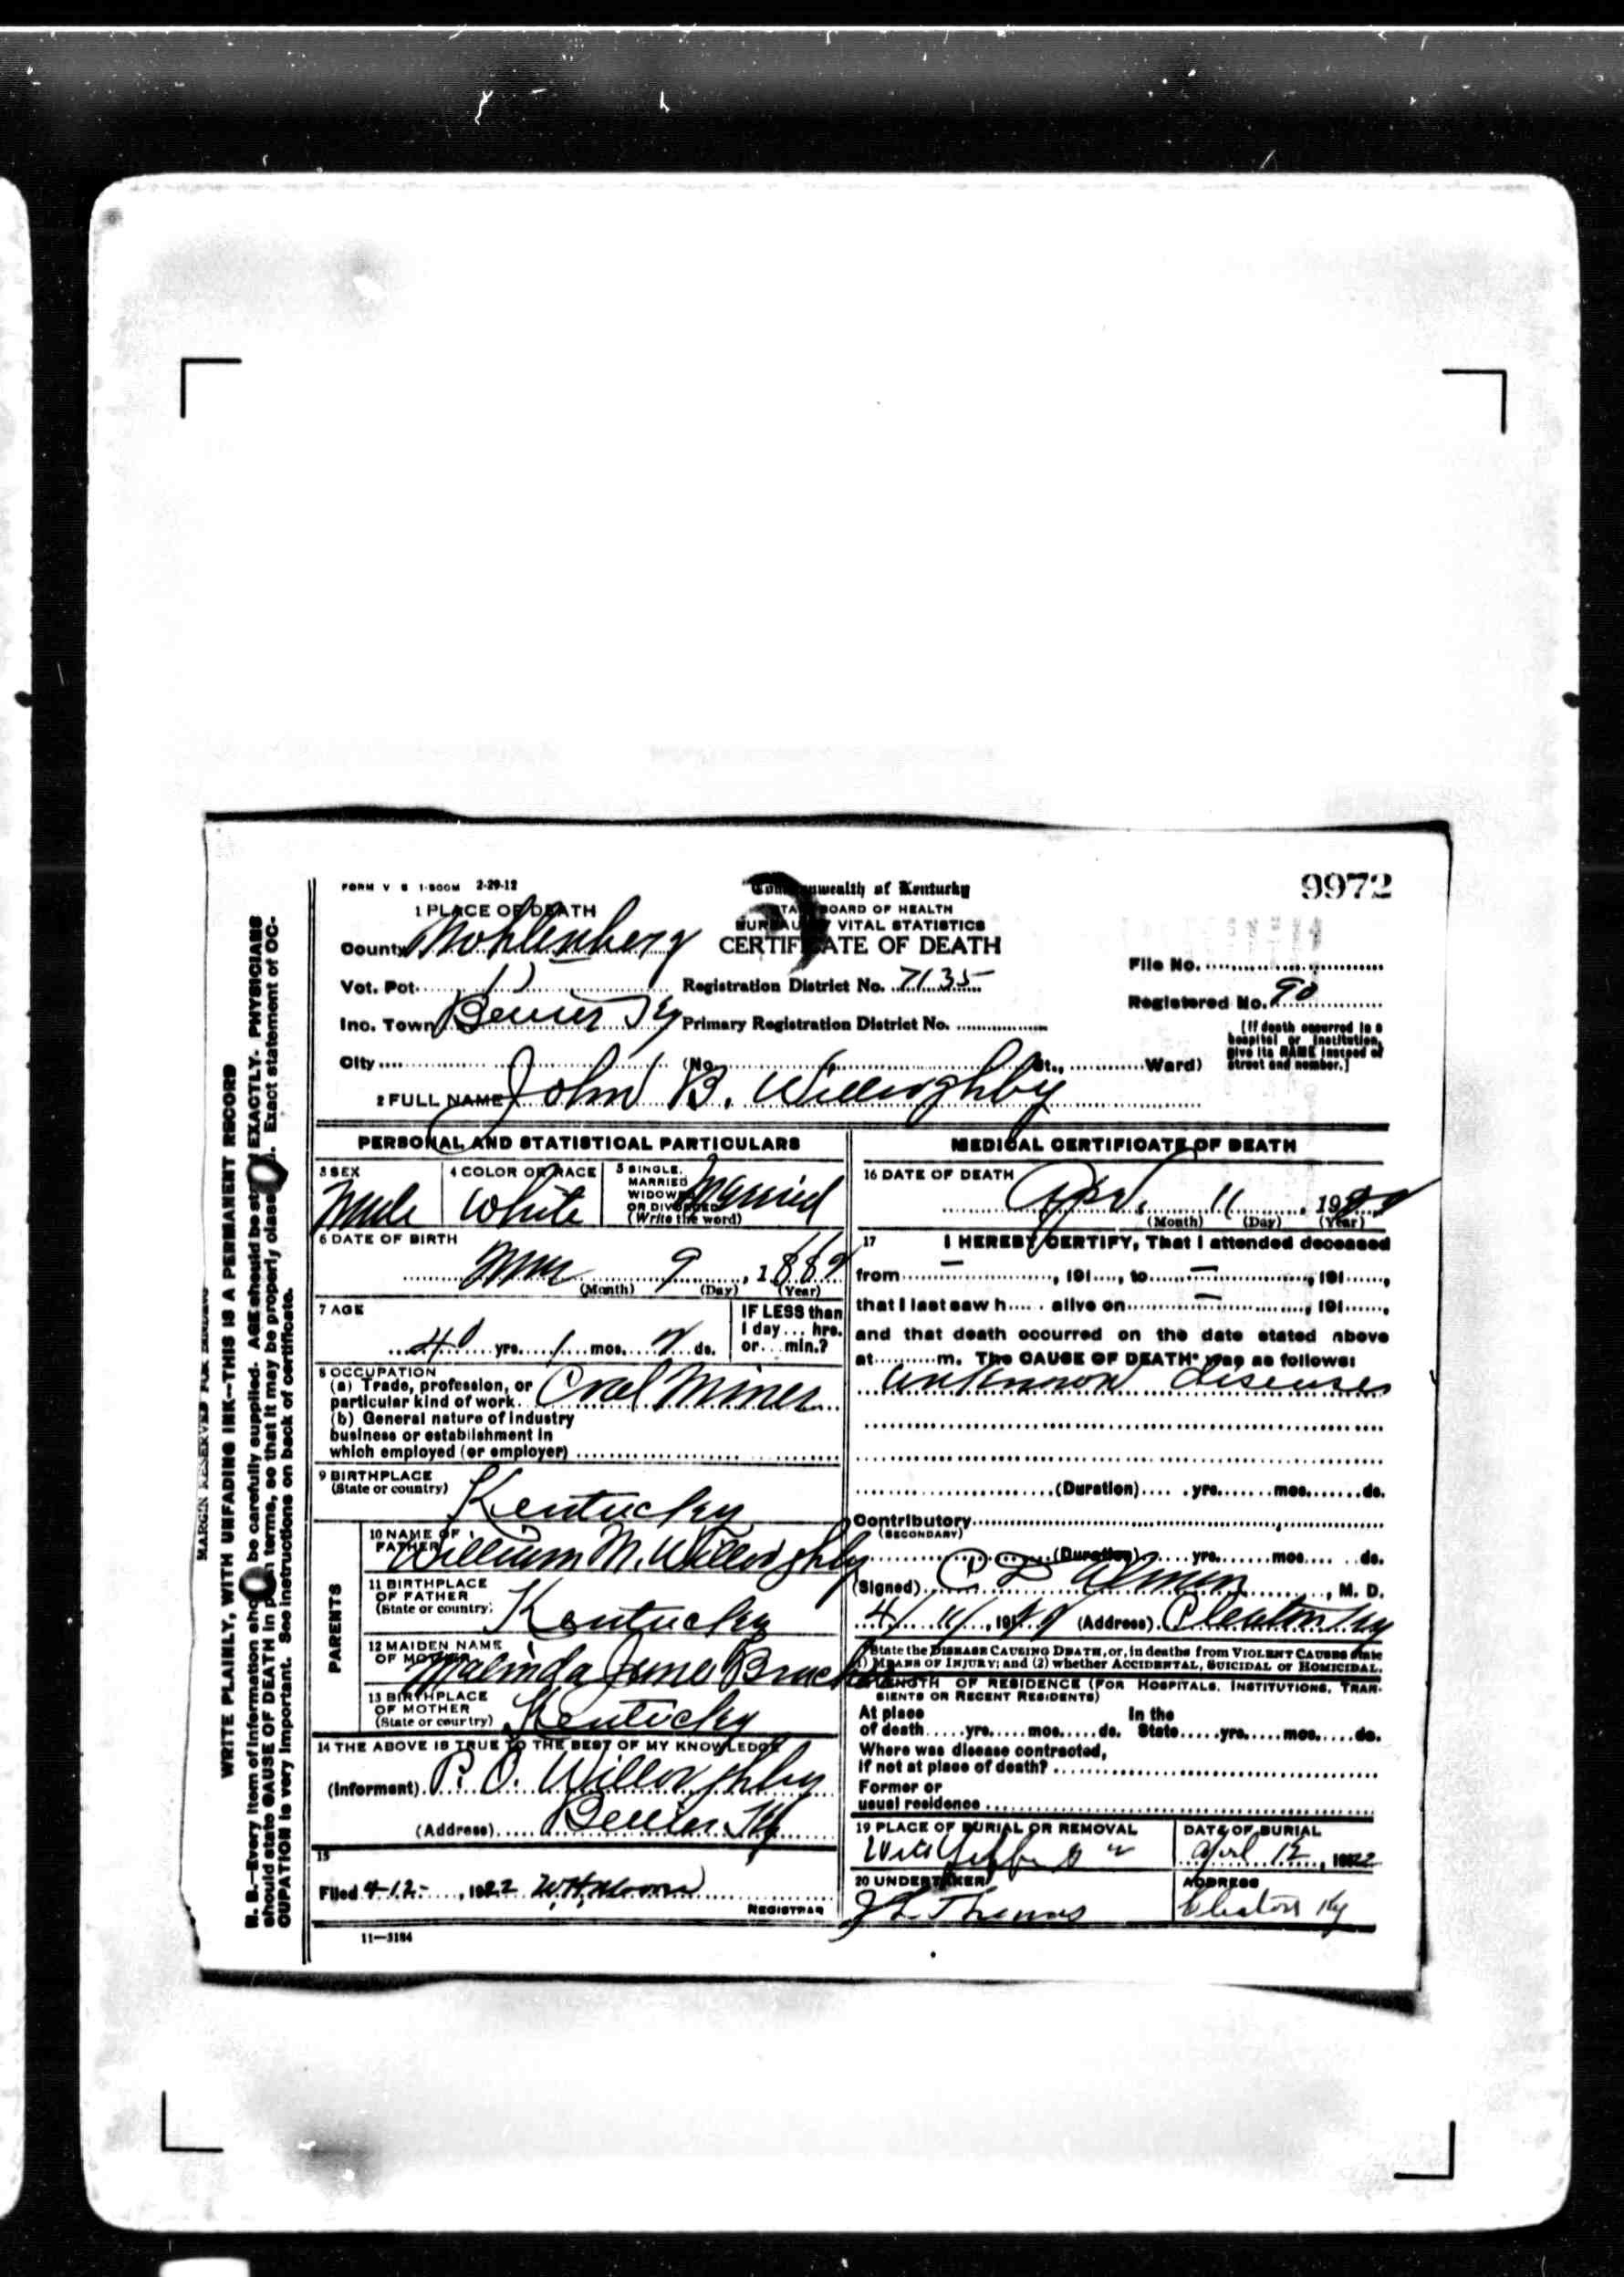 FORM V S 1-500M 2-29-12
1 PLACE OF DEATH
County Mohlenberg
Vot. Pct.
Inc. Town Ky
City (No. St., Ward)
Commonwealth of Kentucky
STATE BOARD OF HEALTH
BUREAU OF VITAL STATISTICS
CERTIFICATE OF DEATH
Registration District No. 7135
Primary Registration District No.
9972
File No.
Registered No. 90
[If death occurred in a
hospital or institution,
give its NAME instead of
street and number.]
2 FULL NAME John B. Willoughby
PERSONAL AND STATISTICAL PARTICULARS
3 SEX
Male
4 COLOR OR RACE
White
5 SINGLE,
MARRIED
WIDOWED
OR DIVORCED
(Write the word)
Married
6 DATE OF BIRTH
9, 188
(Month) (Day) (Year)
7 AGE
40 yrs. 1 mos. 2 ds.
IF LESS than
1 day... hrs.
or... min.?
8 OCCUPATION
(a) Trade, profession, or
particular kind of work. Coal Miner
(b) General nature of industry
business or establishment in
which employed (or employer)
9 BIRTHPLACE
(State or country)
Kentucky
PARENTS
10 NAME OF
FATHER
William M. Willoughby
11 BIRTHPLACE
OF FATHER
(State or country)
Kentucky
12 MAIDEN NAME
OF MOTHER
Malinda Jane
13 BIRTHPLACE
OF MOTHER
(State or country)
Kentucky
14 THE ABOVE IS TRUE TO THE BEST OF MY KNOWLEDGE
(Informant) P. O. Willoughby
(Address) Ky
15
Filed 4-12-, 1922 W.H. Moore
REGISTRAR
11—3184
MEDICAL CERTIFICATE OF DEATH
16 DATE OF DEATH
Apr. 11, 19
(Month) (Day) (Year)
17 I HEREBY CERTIFY, That I attended deceased
from — , 191...., to — , 191......,
that I last saw h..... alive on — , 191......,
and that death occurred on the date stated above
at..........m. The CAUSE OF DEATH* was as follows:
unknown disease
(Duration) yrs. mos. ds.
Contributory
(SECONDARY)
(Duration) yrs. mos. ds.
(Signed) , M. D.
(Address) Cleaton Ky
*State the DISEASE CAUSING DEATH, or, in deaths from VIOLENT CAUSES state
(1) MEANS OF INJURY; and (2) whether ACCIDENTAL, SUICIDAL or HOMICIDAL.
LENGTH OF RESIDENCE (FOR HOSPITALS, INSTITUTIONS, TRAN-
SIENTS OR RECENT RESIDENTS)
At place In the
of death.....yrs.....mos.....ds. State.....yrs.....mos.....ds.
Where was disease contracted,
If not at place of death?
Former or
usual residence
19 PLACE OF BURIAL OR REMOVAL
DATE OF BURIAL
April 12, 1922
20 UNDERTAKER
J L Thomas
ADDRESS
Cleaton Ky
MARGIN RESERVED FOR BINDING
WRITE PLAINLY, WITH UNFADING INK—THIS IS A PERMANENT RECORD
N. B.—Every item of information should be carefully supplied. AGE should be stated EXACTLY. PHYSICIANS
should state CAUSE OF DEATH in plain terms, so that it may be properly classed. Exact statement of OC-
CUPATION is very important. See instructions on back of certificate.